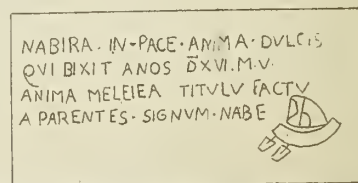 NABIRA · IN-PACE · ANIMA · DVLCIS
QVI BIXIT ANOS D̅XVI.M.V.
ANIMA MELEIEA TITVLV FACTV
A PARENTES · SIGNVM · NABE